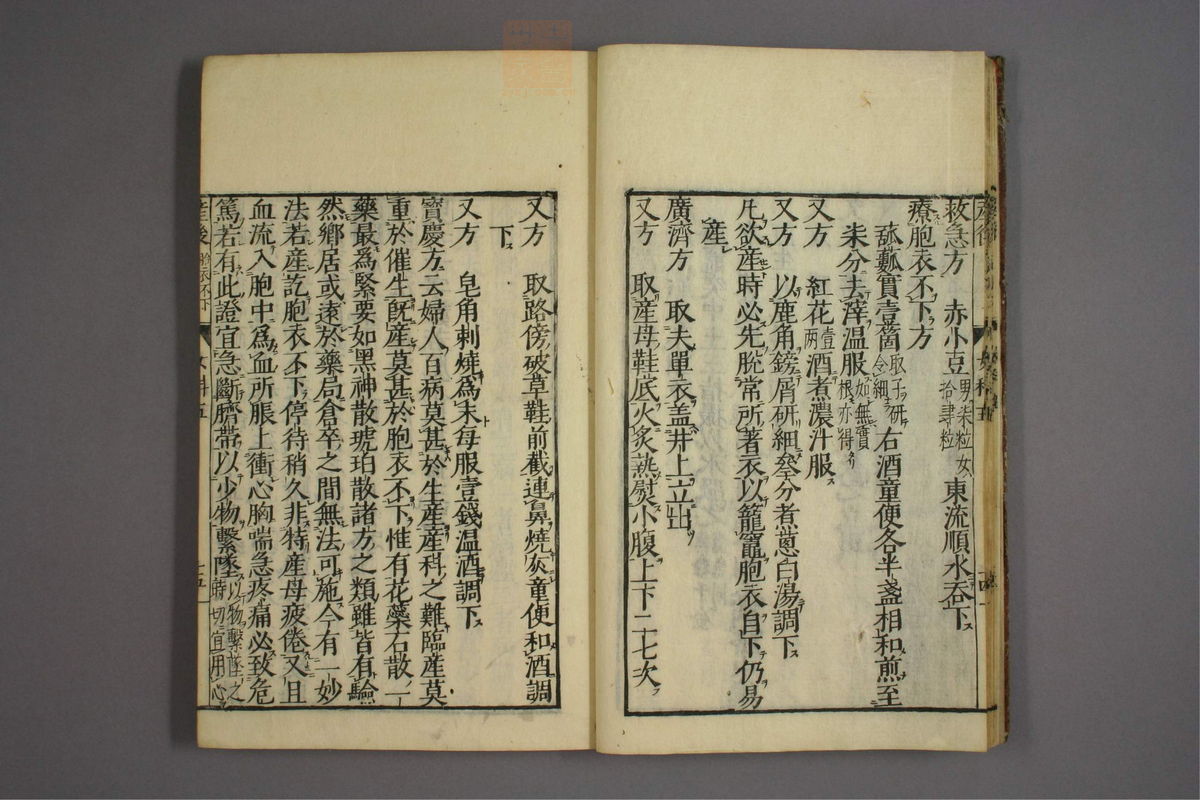 救急方　赤小豆男柒粒女拾肆粒東流順水吞下
療胞衣不下方
䑛瓤實壹箇取子研令細右酒童便各半盞相和煎至
柒分去滓温服如無實根亦得
又方　紅花壹兩酒煮濃汁服
又方　以鹿角鎊屑研細叄分煮葱白湯調下
凡欲産時必先脫常所著衣以籠竈胞衣自下仍易
産
廣濟方　取夫單衣盖井上立出
又方　取産母鞋底火炙熱熨小腹上下二七次
又方　取路傍破草鞋前截連鼻燒灰童便和酒調
下
又方　皂角刺燒爲末每服壹錢温酒調下
寶慶方云婦人百病莫甚於生産産科之難臨産莫
重於催生旣産莫甚於胞衣不下惟有花蘂石散一
藥最爲緊要如黑神散琥珀散諸方之類雖皆有驗
然鄉居或遠於藥局倉卒之間無法可施今有一妙
法若産訖胞衣不下停待稍久非特産母疲倦又且
血流入胞中爲血所脹上衝心胸喘急疼痛必致危
篤若有此證宜急斷臍帶以少物繫墜以物繫墜之時切宜用心
産後　胞衣不下　女科五